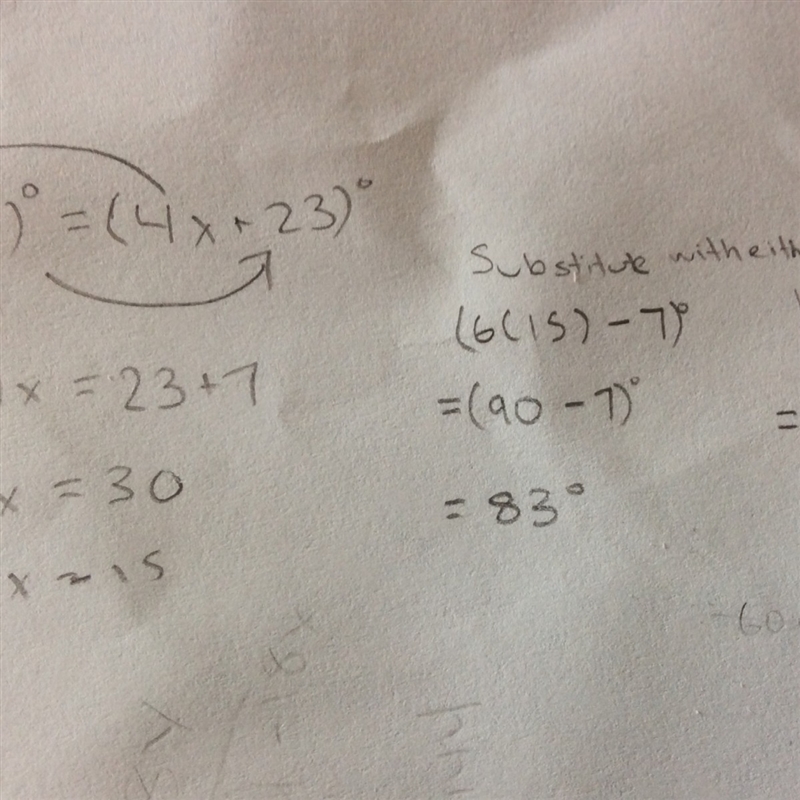 )° = (4x + 23)°
x = 23 + 7
x = 30
x = 15
Substitute with eith
(6(15) - 7)°
= (90 - 7)°
= 83°
=
-60